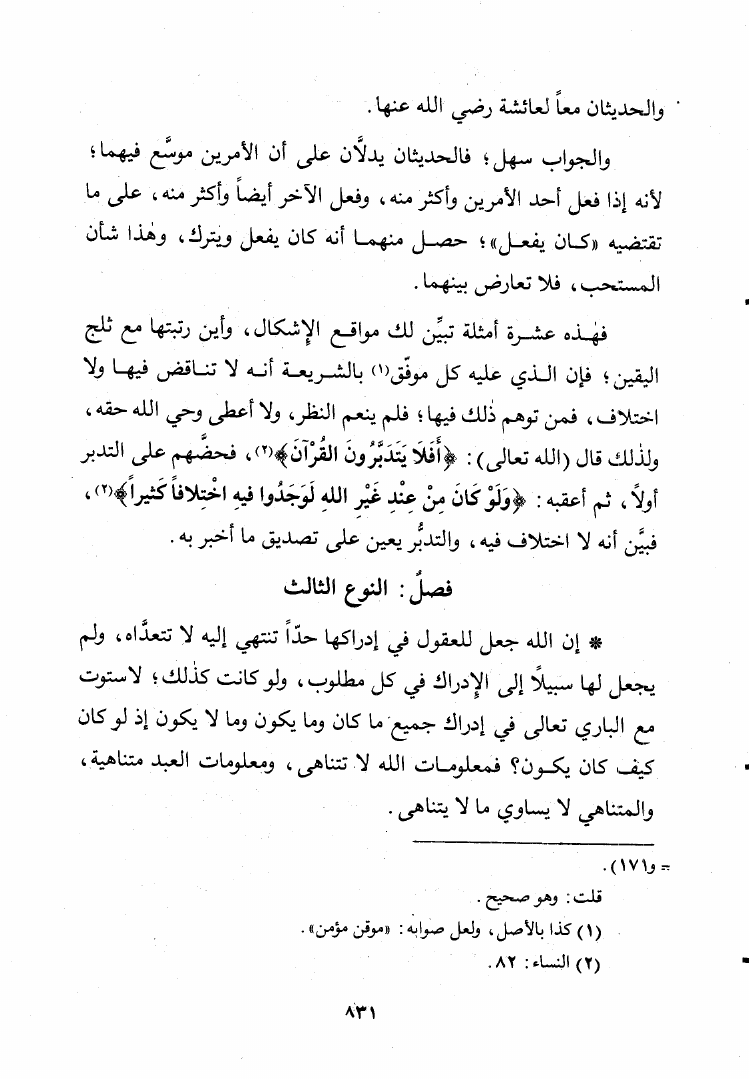 والحديثان معاً لعائشة رضي الله عنها.
والجواب سهل؛ فالحديثان يدلَّان على أن الأمرين موسَّع فيهما؛
لأنه إذا فعل أحد الأمرين وأكثر منه، وفعل الآخر أيضاً وأكثر منه، على ما
تقتضيه «كان يفعل»؛ حصل منهما أنه كان يفعل ويترك، وهٰذا شأن
المستحب، فلا تعارض بينهما.
فهٰذه عشرة أمثلة تبيِّن لك مواقع الإشكال، وأين رتبتها مع ثلج
اليقين؛ فإن الذي عليه كل موفّق(١) بالشريعة أنه لا تناقض فيها ولا
اختلاف، فمن توهم ذٰلك فيها؛ فلم ينعم النظر، ولا أعطى وحي الله حقه،
ولذٰلك قال (الله تعالى): ﴿أَفَلَا يَتَدَبَّرُونَ القُرْآنَ﴾(٢)، فحضَّهم على التدبر
أولاً، ثم أعقبه: ﴿وَلَوْ كَانَ مِنْ عِنْدِ غَيْرِ اللهِ لَوَجَدُوا فيهِ اخْتِلافاً كَثيراً﴾(٢)،
فبيَّن أنه لا اختلاف فيه، والتدبُّر يعين على تصديق ما أخبر به.
فصلٌ: النوع الثالث
* إن الله جعل للعقول في إدراكها حدّاً تنتهي إليه لا تتعدَّاه، ولم
يجعل لها سبيلًا إلى الإدراك في كل مطلوب، ولو كانت كذٰلك؛ لاستوت
مع الباري تعالى في إدراك جميع ما كان وما يكون وما لا يكون إذ لو كان
كيف كان يكون؟ فمعلومات الله لا تتناهى، ومعلومات العبد متناهية،
والمتناهي لا يساوي ما لا يتناهى.
= و١٧١).
قلت: وهو صحيح.
(١) كذا بالأصل، ولعل صوابه: «موقن مؤمن».
(٢) النساء: ٨٢.
٨٣١